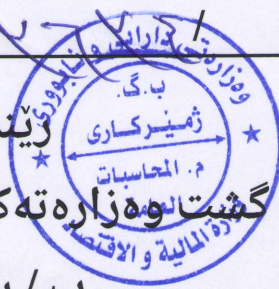 وەزارەتی دارایی و ئابووری
ب.گ.
ژمێرکاری
م. المحاسبات
العامة
وزارة المالية و الاقتصاد
گشت وەزارەتەک